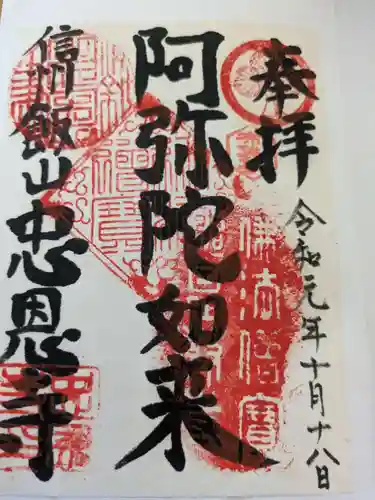 奉拝
令和元年十月十八日
阿弥陀如来
信州飯山忠恩寺
佛法僧寶